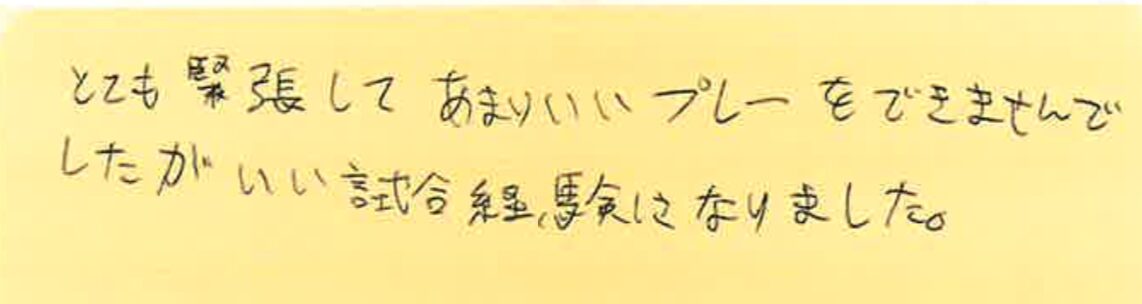 とても緊張してあまりいいプレーをできませんで
したがいい試合経験になりました。